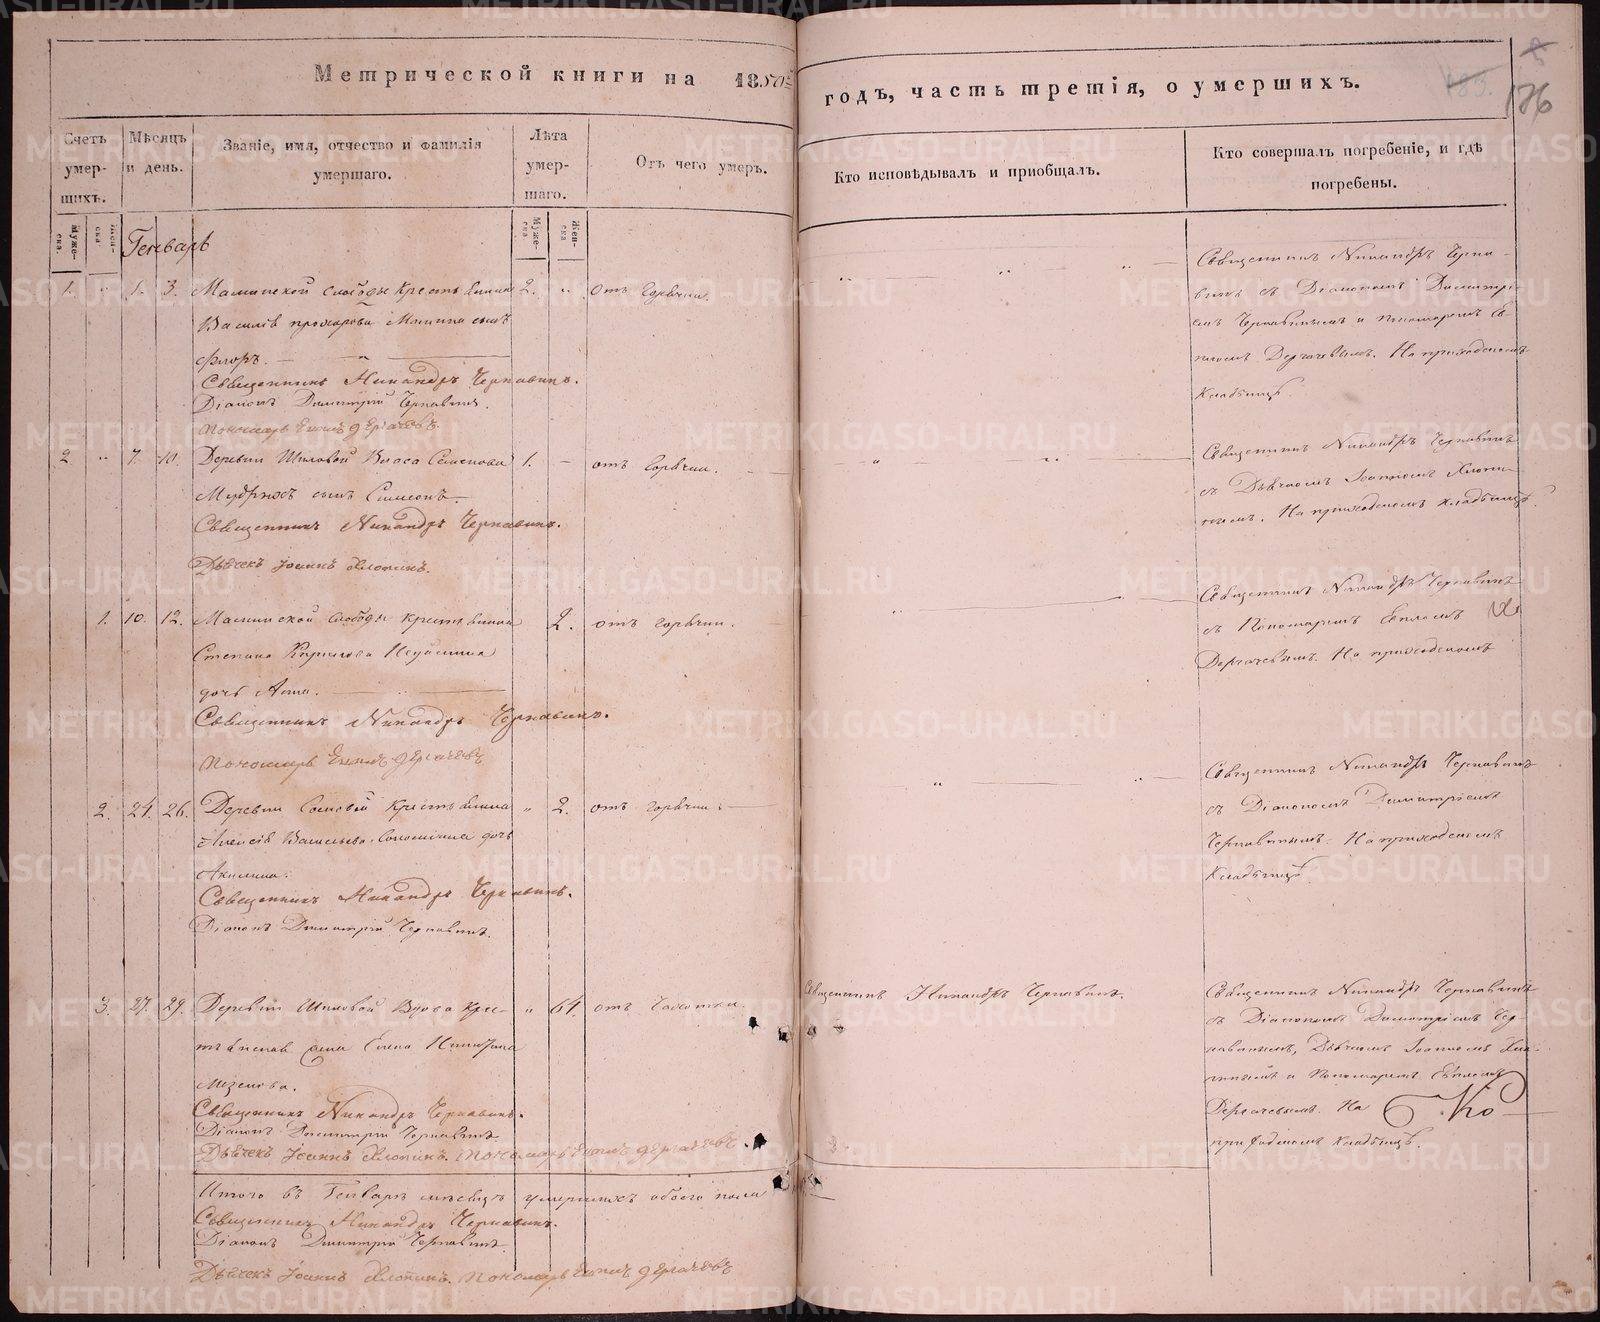 Метрической книги на 1850й
годъ, часть третія, о умершихъ.
185.
8
176
Счетъ умершихъ.
Мѣсяцъ и день.
Званіе, имя, отчество и фамилія умершаго.
Лѣта умершаго.
Отъ чего умеръ.
Кто исповѣдывалъ и пріобщалъ.
Кто совершалъ погребеніе, и гдѣ погребены.
Мужеска.
Женска.
Мужеска
Женска
Генварь
1. " 1. 3. Маминской слободы крестьянина 2. " отъ горячки.
Василія Мамина сынъ
Флоръ.
Священникъ Никандръ Чернавинъ.
Діаконъ Димитрій Чернавинъ.
Пономарь Дергачевъ
Священникъ Никандръ Чернавинъ съ Діакономъ Димитріемъ Чернавинымъ и пономаремъ Дергачевымъ. На приходскомъ
Кладбищѣ.
2. " 7. 10. Деревни Шиловой Власа Семенова 1. – отъ горячки.
Мудрыхъ сынъ Симеонъ.
Священникъ Никандръ Чернавинъ.
Дьячекъ Іоаннъ Хлопинъ.
Священникъ Никандръ Чернавинъ
съ Дьячкомъ Іоанномъ
На приходскомъ кладбищѣ
1. 10. 12. Маминской слободы крестьянина 2. отъ горячки.
Степана Кирилова
дочь Анна.
Священникъ Никандръ Чернавинъ.
Пономарь Дергачевъ
Священникъ Никандръ Чернавинъ
съ Пономаремъ
Дергачевымъ. На приходскомъ
2. 24. 26. Деревни крестьянина " 2. отъ горячки.
Алексѣя Васильева дочь
Акилина.
Священникъ Никандръ Чернавинъ.
Діаконъ Димитрій Чернавинъ.
Священникъ Никандръ Чернавинъ
съ Діакономъ Димитріемъ
Чернавинымъ. На приходскомъ
Кладбищѣ.
3. 27. 29. Деревни Шиловой вдова крестьянская " 64. отъ чахотки.
Елена Никитина
Мезенова.
Священникъ Никандръ Чернавинъ.
Діаконъ Димитрій Чернавинъ
Дьячекъ Іоаннъ Хлопинъ. Пономарь Дергачевъ.
Священникъ Никандръ Чернавинъ.
Священникъ Никандръ Чернавинъ
съ Діакономъ Димитріемъ Чернавинымъ, Дьячкомъ Іоанномъ
и Пономаремъ
Дергачевымъ. На
приходскомъ кладбищѣ.
Итого въ Генварѣ мѣсяцѣ умершихъ обоего пола
Священникъ Никандръ Чернавинъ.
Діаконъ Димитрій Чернавинъ
Дьячекъ Іоаннъ Хлопинъ. Пономарь Дергачевъ
METRIKI.GASO-URAL.RU